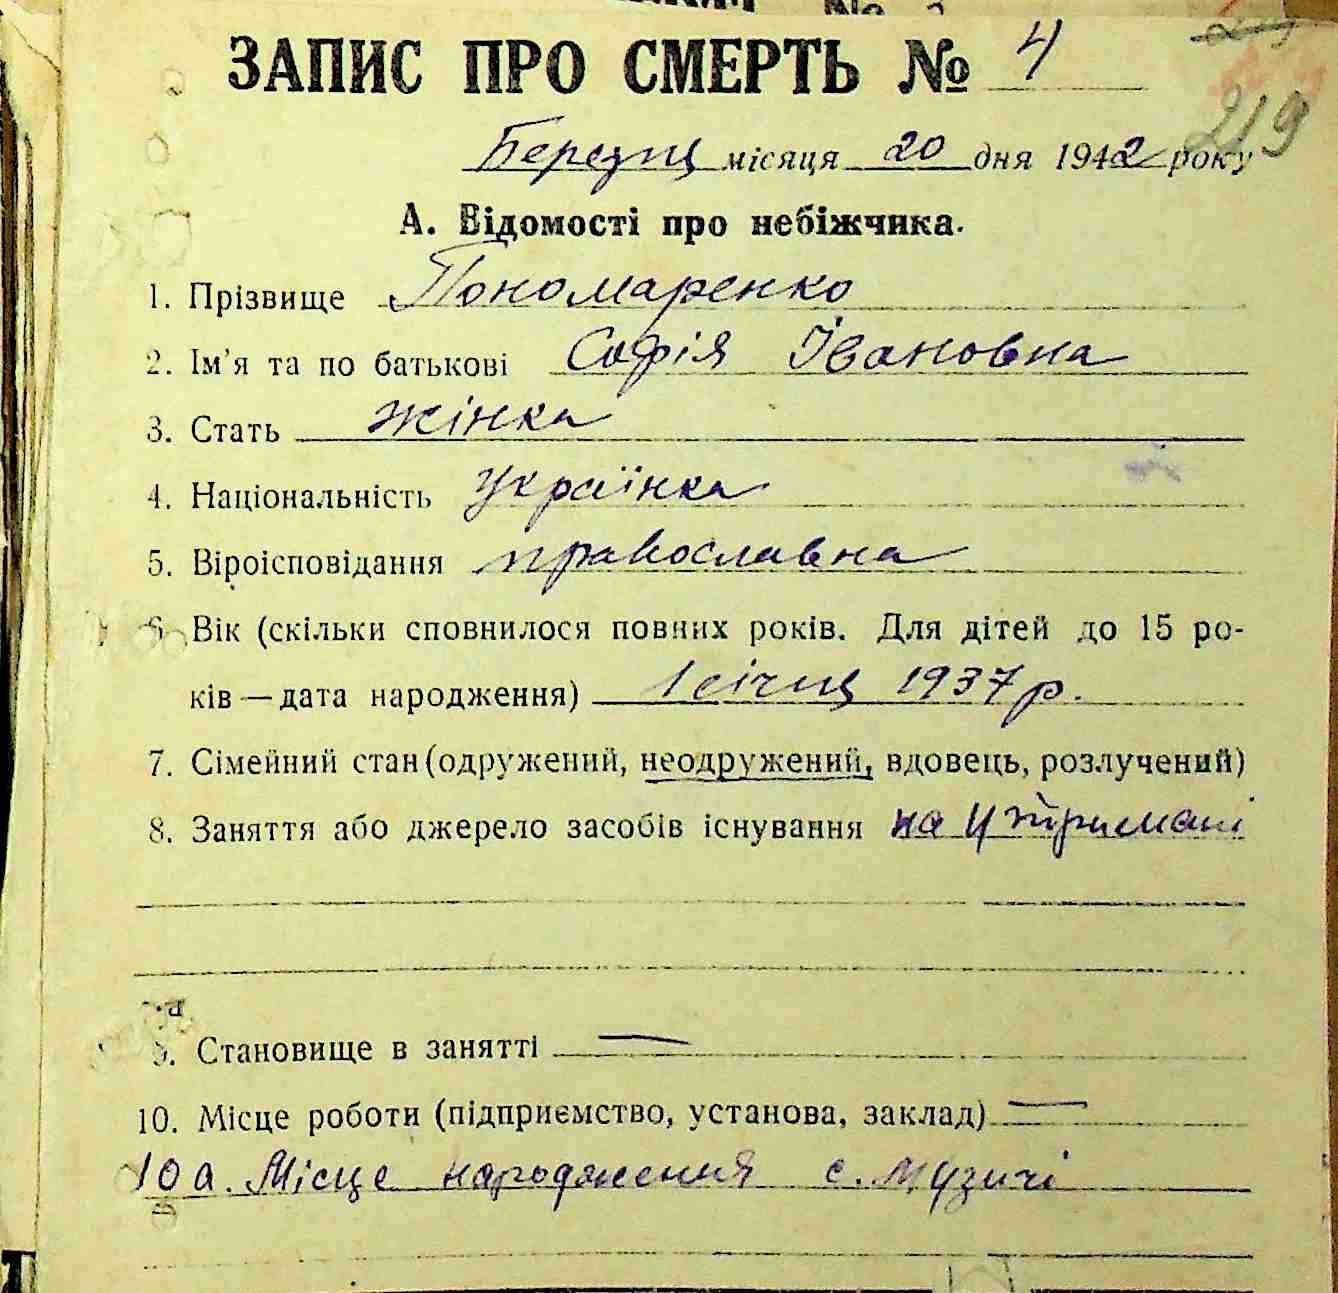 ЗАПИС ПРО СМЕРТЬ № 4
219
Березня місяця 20 дня 1942 року
А. Відомості про небіжчика.
1. Прізвище Пономаренко
2. Ім'я та по батькові Софія Івановна
3. Стать жінка
4. Національність українка
5. Віроісповідання православна
6. Вік (скільки сповнилося повних років. Для дітей до 15 ро-
ків — дата народження) 1 січня 1937 р.
7. Сімейний стан (одружений, неодружений, вдовець, розлучений)
8. Заняття або джерело засобів існування на утримані
9. Становище в занятті —
10. Місце роботи (підприємство, установа, заклад) —
10а. Місце народження с. Музичі